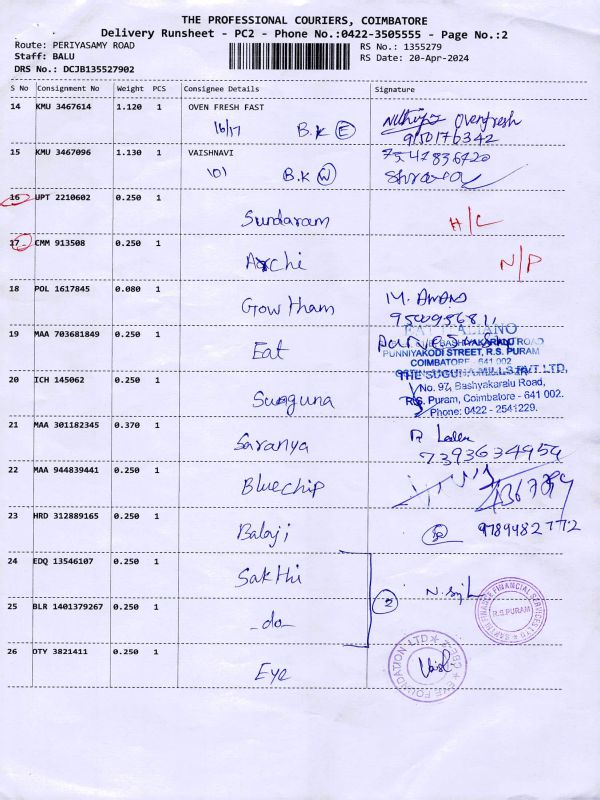 THE PROFESSIONAL COURIERS, COIMBATORE
Delivery Runsheet - PC2 - Phone No.:0422-3505555 - Page No.:2
Route: PERIYASAMY ROAD
RS No.: 1355279
Staff: BALU
RS Date: 20-Apr-2024
DRS No.: DCJB135527902
S No Consignment No Weight PCS Consignee Details Signature
14 KMU 3467614 1.120 1 OVEN FRESH FAST
16/17 B.K E
Ovenfresh
9150176342
15 KMU 3467096 1.130 1 VAISHNAVI
101 B.K W
7541836720
16 UPT 2210602 0.250 1 Sundaram H/C
17 CMM 913508 0.250 1 Archi N/P
18 POL 1617845 0.080 1 Gowtham
19 MAA 703681849 0.250 1 Eat
PUNNIYAKODI STREET, R.S. PURAM
COIMBATORE - 641 002
20 ICH 145062 0.250 1 Suguna
THE SUGUNA MILLS PVT. LTD,
No. 97, Bashyakaralu Road,
R.S. Puram, Coimbatore - 641 002.
Phone: 0422 - 2541229.
21 MAA 301182345 0.370 1 Saranya
7393634954
22 MAA 944839441 0.250 1 Bluechip
23 HRD 312889165 0.250 1 Balaji
9789482772
24 EDQ 13546107 0.250 1 Sakthi
2
R.S. PURAM
25 BLR 1401379267 0.250 1 -do-
26 OTY 3821411 0.250 1 Eye
EYE FOUNDATION LTD